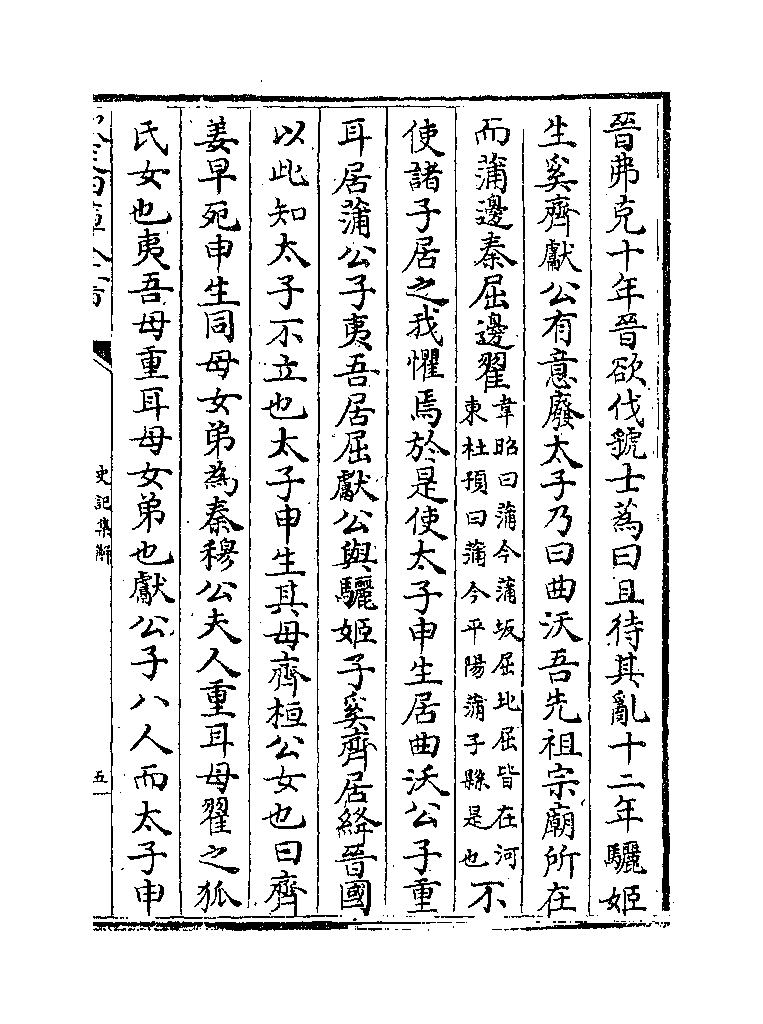 晉弗克十年晉欲伐虢士蒍曰且待其亂十二年驪姬
生奚齊獻公有意廢太子乃曰曲沃吾先祖宗廟所在
而蒲邊秦屈邊翟韋昭曰蒲今蒲坂屈北屈皆在河東杜預曰蒲今平陽蒲子縣是也不
使諸子居之我懼焉於是使太子申生居曲沃公子重
耳居蒲公子夷吾居屈獻公與驪姬子奚齊居絳晉國
以此知太子不立也太子申生其母齊桓公女也曰齊
姜早死申生同母女弟為秦穆公夫人重耳母翟之狐
氏女也夷吾母重耳母女弟也獻公子八人而太子申
欽定四庫全書
史記集解
五